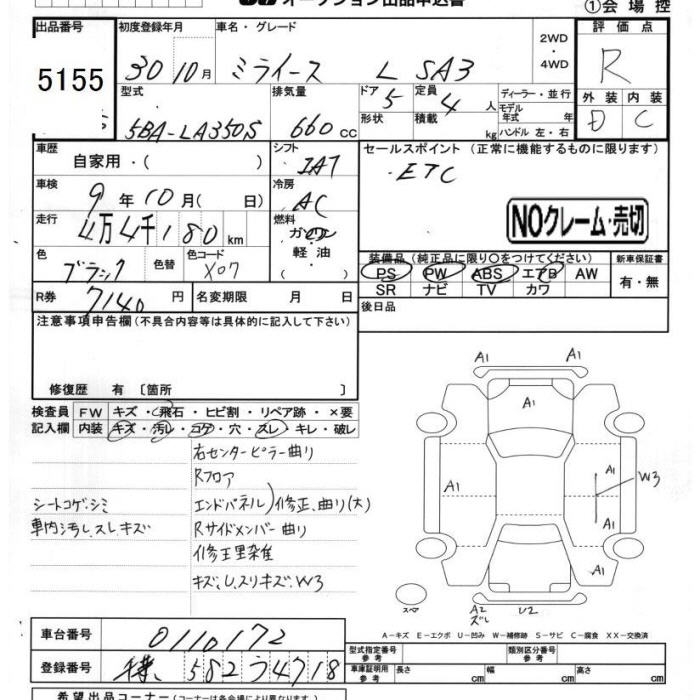 オークション出品申込書
①会場控
出品番号 初度登録年月 車名・グレード 2WD・4WD 評価点
5155 30 10月 ミライース L SA3 R
型式 排気量 ドア 5 定員 4人 ディーラー・並行 外装 内装
5BA-LA350S 660cc 形状 積載 kg モデル年式 年 ハンドル 左・右 D C
車歴 自家用・( ) シフト IAT セールスポイント (正常に機能するものに限ります)
ETC
車検 9年10月( 日) 冷房 AC
走行 4万4千180km 燃料 ガソリン 軽油 NOクレーム・売切
色 ブラック 色替 色コード X07 装備品 (純正品に限り○をつけてください) 新車保証書
PS PW ABS エアB AW 有・無
SR ナビ TV カワ
R券 7140円 名変期限 月 日 後日品
注意事項申告欄(不具合内容等は具体的に記入して下さい)
修復歴 有 〔箇所 〕
検査員 FW キズ・飛石・ヒビ割・リペア跡・×要
記入欄 内装 キズ・汚レ・コゲ・穴・スレ・キレ・破レ
右センターピラー曲り
Rフロア
シートコゲ、シミ エンドパネル)修正、曲り(大)
車内汚れ、スレ、キズ Rサイドメンバー曲り
修正里雑
キズ、U、スリキズ、W3
A1 A1
A1
A1 A1 W3
A1
A1
スペア A2 ズレ U2
A-キズ E-エクボ U-凹み W-補修跡 S-サビ C-腐食 XX-交換済
車台番号 0110172
型式指定番号 参考 類別区分番号 参考
登録番号 582 う4718
車庫証明用 参考 長さ cm 幅 cm 高さ cm
希望出品コーナー(コーナーは各会場により異なります)